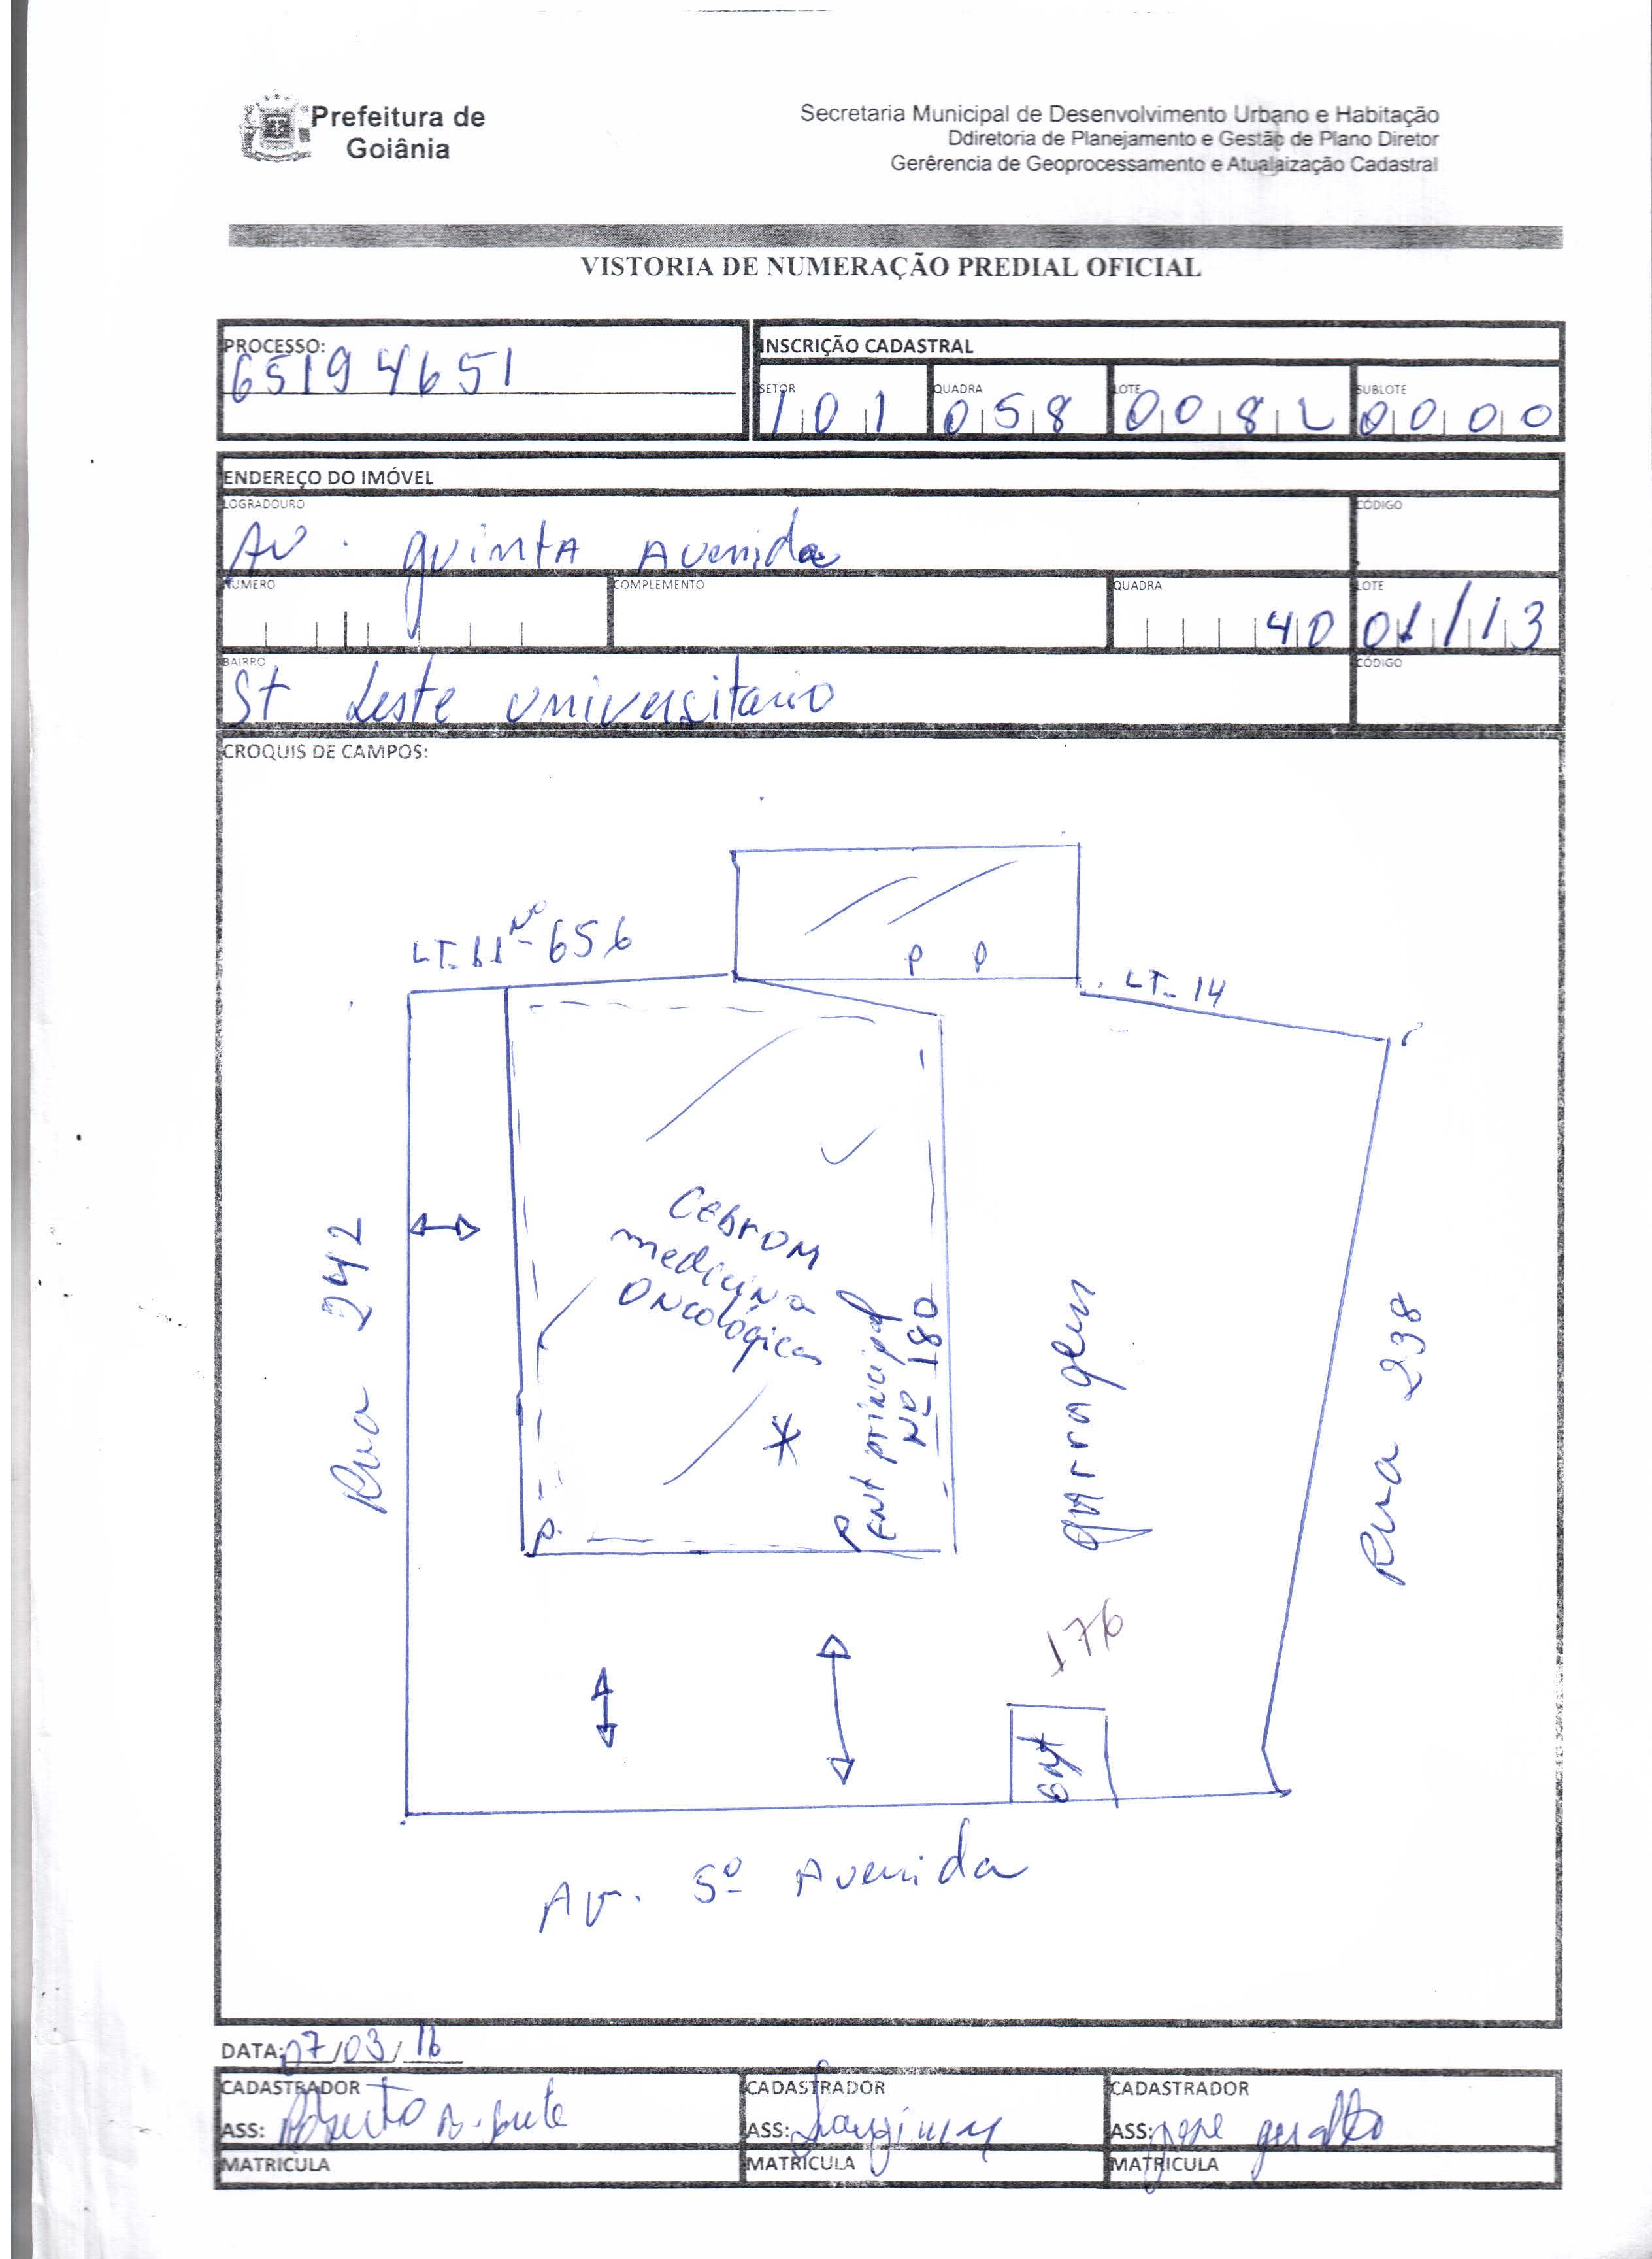 Prefeitura de
Goiânia
Secretaria Municipal de Desenvolvimento Urbano e Habitação
Ddiretoria de Planejamento e Gestão de Plano Diretor
Gerêrencia de Geoprocessamento e Atualaização Cadastral
VISTORIA DE NUMERAÇÃO PREDIAL OFICIAL
PROCESSO:
65194651
INSCRIÇÃO CADASTRAL
SETOR QUADRA LOTE SUBLOTE
101 058 0082 0000
ENDEREÇO DO IMÓVEL
LOGRADOURO CÓDIGO
Av. quinta Avenida
NÚMERO COMPLEMENTO QUADRA LOTE
40 01/13
BAIRRO CÓDIGO
St Leste universitario
CROQUIS DE CAMPOS:
LT-11 Nº 656
LT-14
P P
Rua 242
Cebrom
medicina
Oncológica
Ent principal
Nº 180
garragem
Rua 238
P. P
176
Ent
Av. 5º Avenida
DATA: 07/03/16
CADASTRADOR CADASTRADOR CADASTRADOR
ASS: Roberto ASS: ASS: jose geraldo
MATRICULA MATRÍCULA MATRICULA